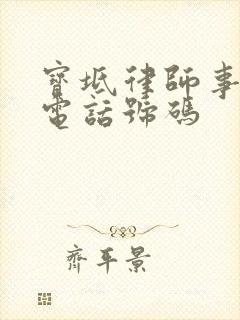 寶坻律師事
電話號碼
齊平景